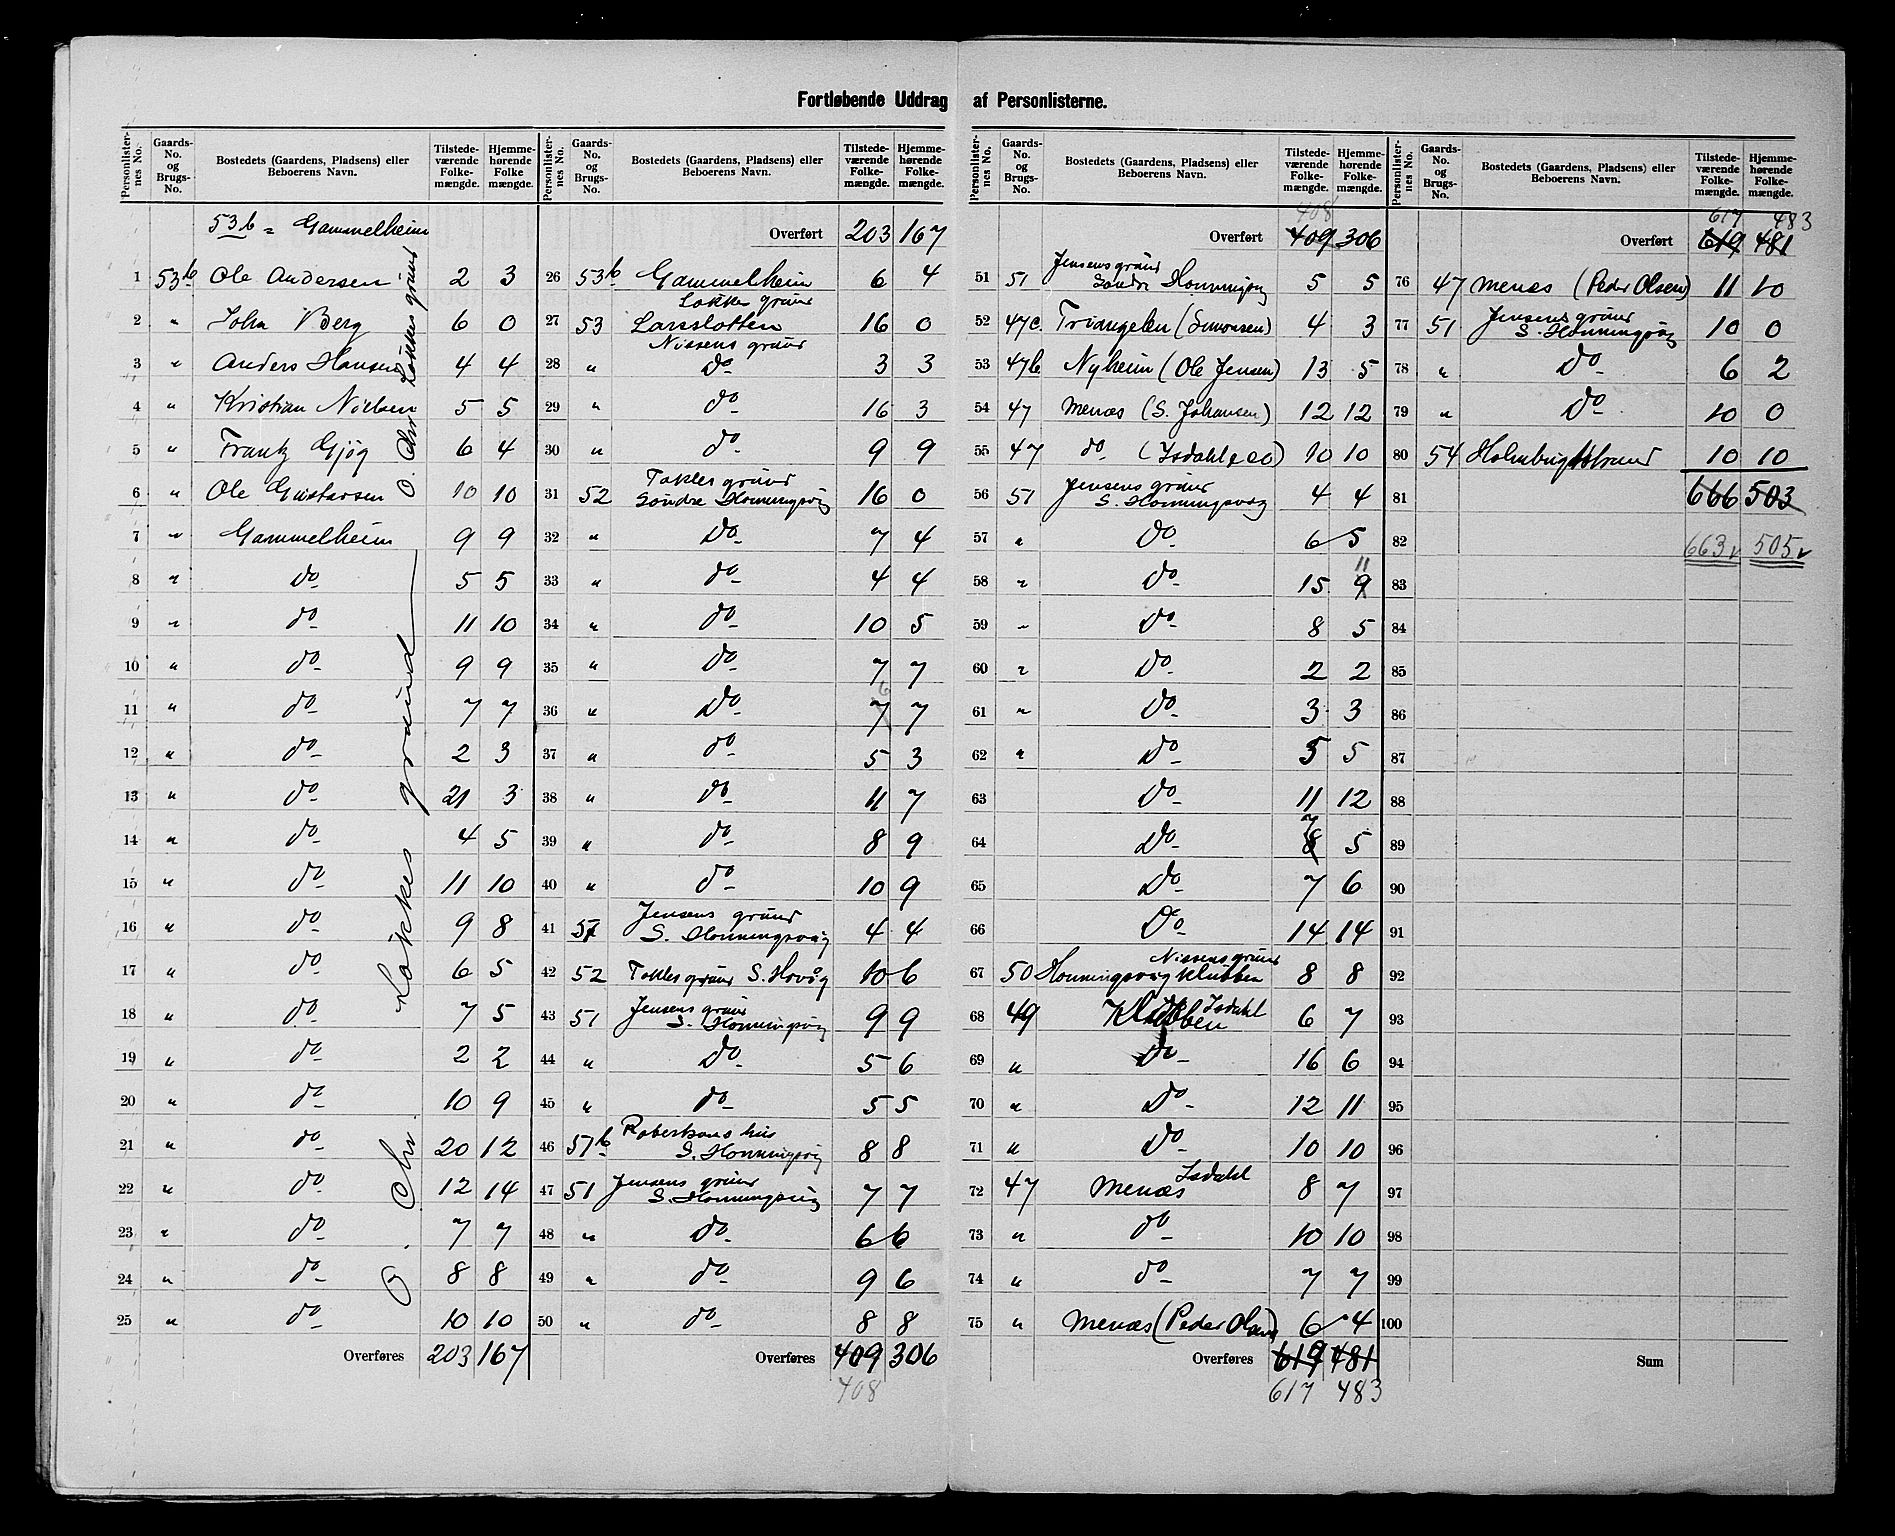 Fortløbende Uddrag af Personlisterne.
Personlister-nes No. | Gaards-No. og Brugs-No. | Bostedets (Gaardens, Pladsens) eller Beboerens Navn. | Tilstede-værende Folke-mængde. | Hjemme-hørende Folke mængde.
53b = Gammelheim 203 167
1 53b Ole Andersen 2 3
2 " John Berg 6 0
3 " Anders Hansen 4 4
4 " Kristian Nielsen 5 5
5 " Frantz Gjøg 6 4
6 " Ole Gustavsen 10 10
O. Chr Løkkes grund
7 " Gammelheim 9 9
8 " do 5 5
9 " do 11 10
10 " do 9 9
11 " do 7 7
12 " do 2 3
13 " do 21 3
14 " do 4 5
15 " do 11 10
16 " do 9 8
17 " do 6 5
18 " do 7 5
19 " do 2 2
20 " do 10 9
21 " do 20 12
22 " do 12 14
23 " do 7 7
24 " do 8 8
25 " do 10 10
O. Chr. Løkkes grund
Overføres 203 167
Personlister-nes No. | Gaards-No. og Brugs-No. | Bostedets (Gaardens, Pladsens) eller Beboerens Navn. | Tilstede-værende Folke-mængde. | Hjemme-hørende Folke-mængde.
Overført 203 167
26 53b Gammelheim 6 4
Løkkes grund
27 53 Larsslotten 16 0
Nissens grund
28 " do 3 3
29 " do 16 3
30 " do 9 9
Tokles grund
31 52 Søndre Honningsvåg 16 0
32 " Do 7 4
33 " do 4 4
34 " do 10 5
35 " do 7 7
6
36 " Do 7 7
37 " do 5 3
38 " do 11 7
39 " do 8 9
40 " do 10 9
Jensens grund
41 51 S. Honningsvåg 4 4
42 52 Tokles grund S. Hvåg 10 6
Jensens grund
43 51 S. Honningsvåg 9 9
44 " Do 5 6
45 " do 5 5
Robertsons hus
46 51b S. Honningsvåg 8 8
Jensens grund
47 51 S. Honningsvåg 7 7
48 " do 6 6
49 " do 9 6
50 " do 8 8
Overføres 409 306
408
Personlister-nes No. | Gaards-No. og Brugs-No. | Bostedets (Gaardens, Pladsens) eller Beboerens Navn. | Tilstede-værende Folke-mængde. | Hjemme-hørende Folke-mængde.
408
Overført 409 306
Jensens grund
51 51 Søndre Honningsvåg 5 5
52 47c. Triangelen (Simonsen) 4 3
53 47b Nyheim (Ole Jensen) 13 5
54 47 Menæs (S. Johansen) 12 12
55 47 do (Isdahl & Co) 10 10
Jensens grund
56 51 S. Honningsvåg 4 4
57 " Do 6 5
11
58 " Do 15 9
59 " Do 8 5
60 " Do 2 2
61 " Do 3 3
62 " Do 5 5
63 Do 11 12
7
64 Do 8 5
65 Do 7 6
66 Do 14 14
Nissens grund
67 50 Honningsvåg Klubben 8 8
Isdahl
68 49 Klubben 6 7
69 " Do 16 6
70 " Do 12 11
71 " Do 10 10
Isdahl
72 47 Menæs 8 7
73 " do 10 10
74 " do 7 7
75 " Menæs (Peder Olsen) 6 4
Overføres 619 481
617 483
Personlister-nes No. | Gaards-No. og Brugs-No. | Bostedets (Gaardens, Pladsens) eller Beboerens Navn. | Tilstede-værende Folke-mængde. | Hjemme-hørende Folke-mængde.
617 483
Overført 619 481
76 47 Menæs (Peder Olsen) 11 10
Jensens grund
77 51 S. Honningsvåg 10 0
78 " Do 6 2
79 " Do 10 0
80 54 Holmbugtstrand 10 10
81 666 503
82 663 505
83
84
85
86
87
88
89
90
91
92
93
94
95
96
97
98
99
100
Sum